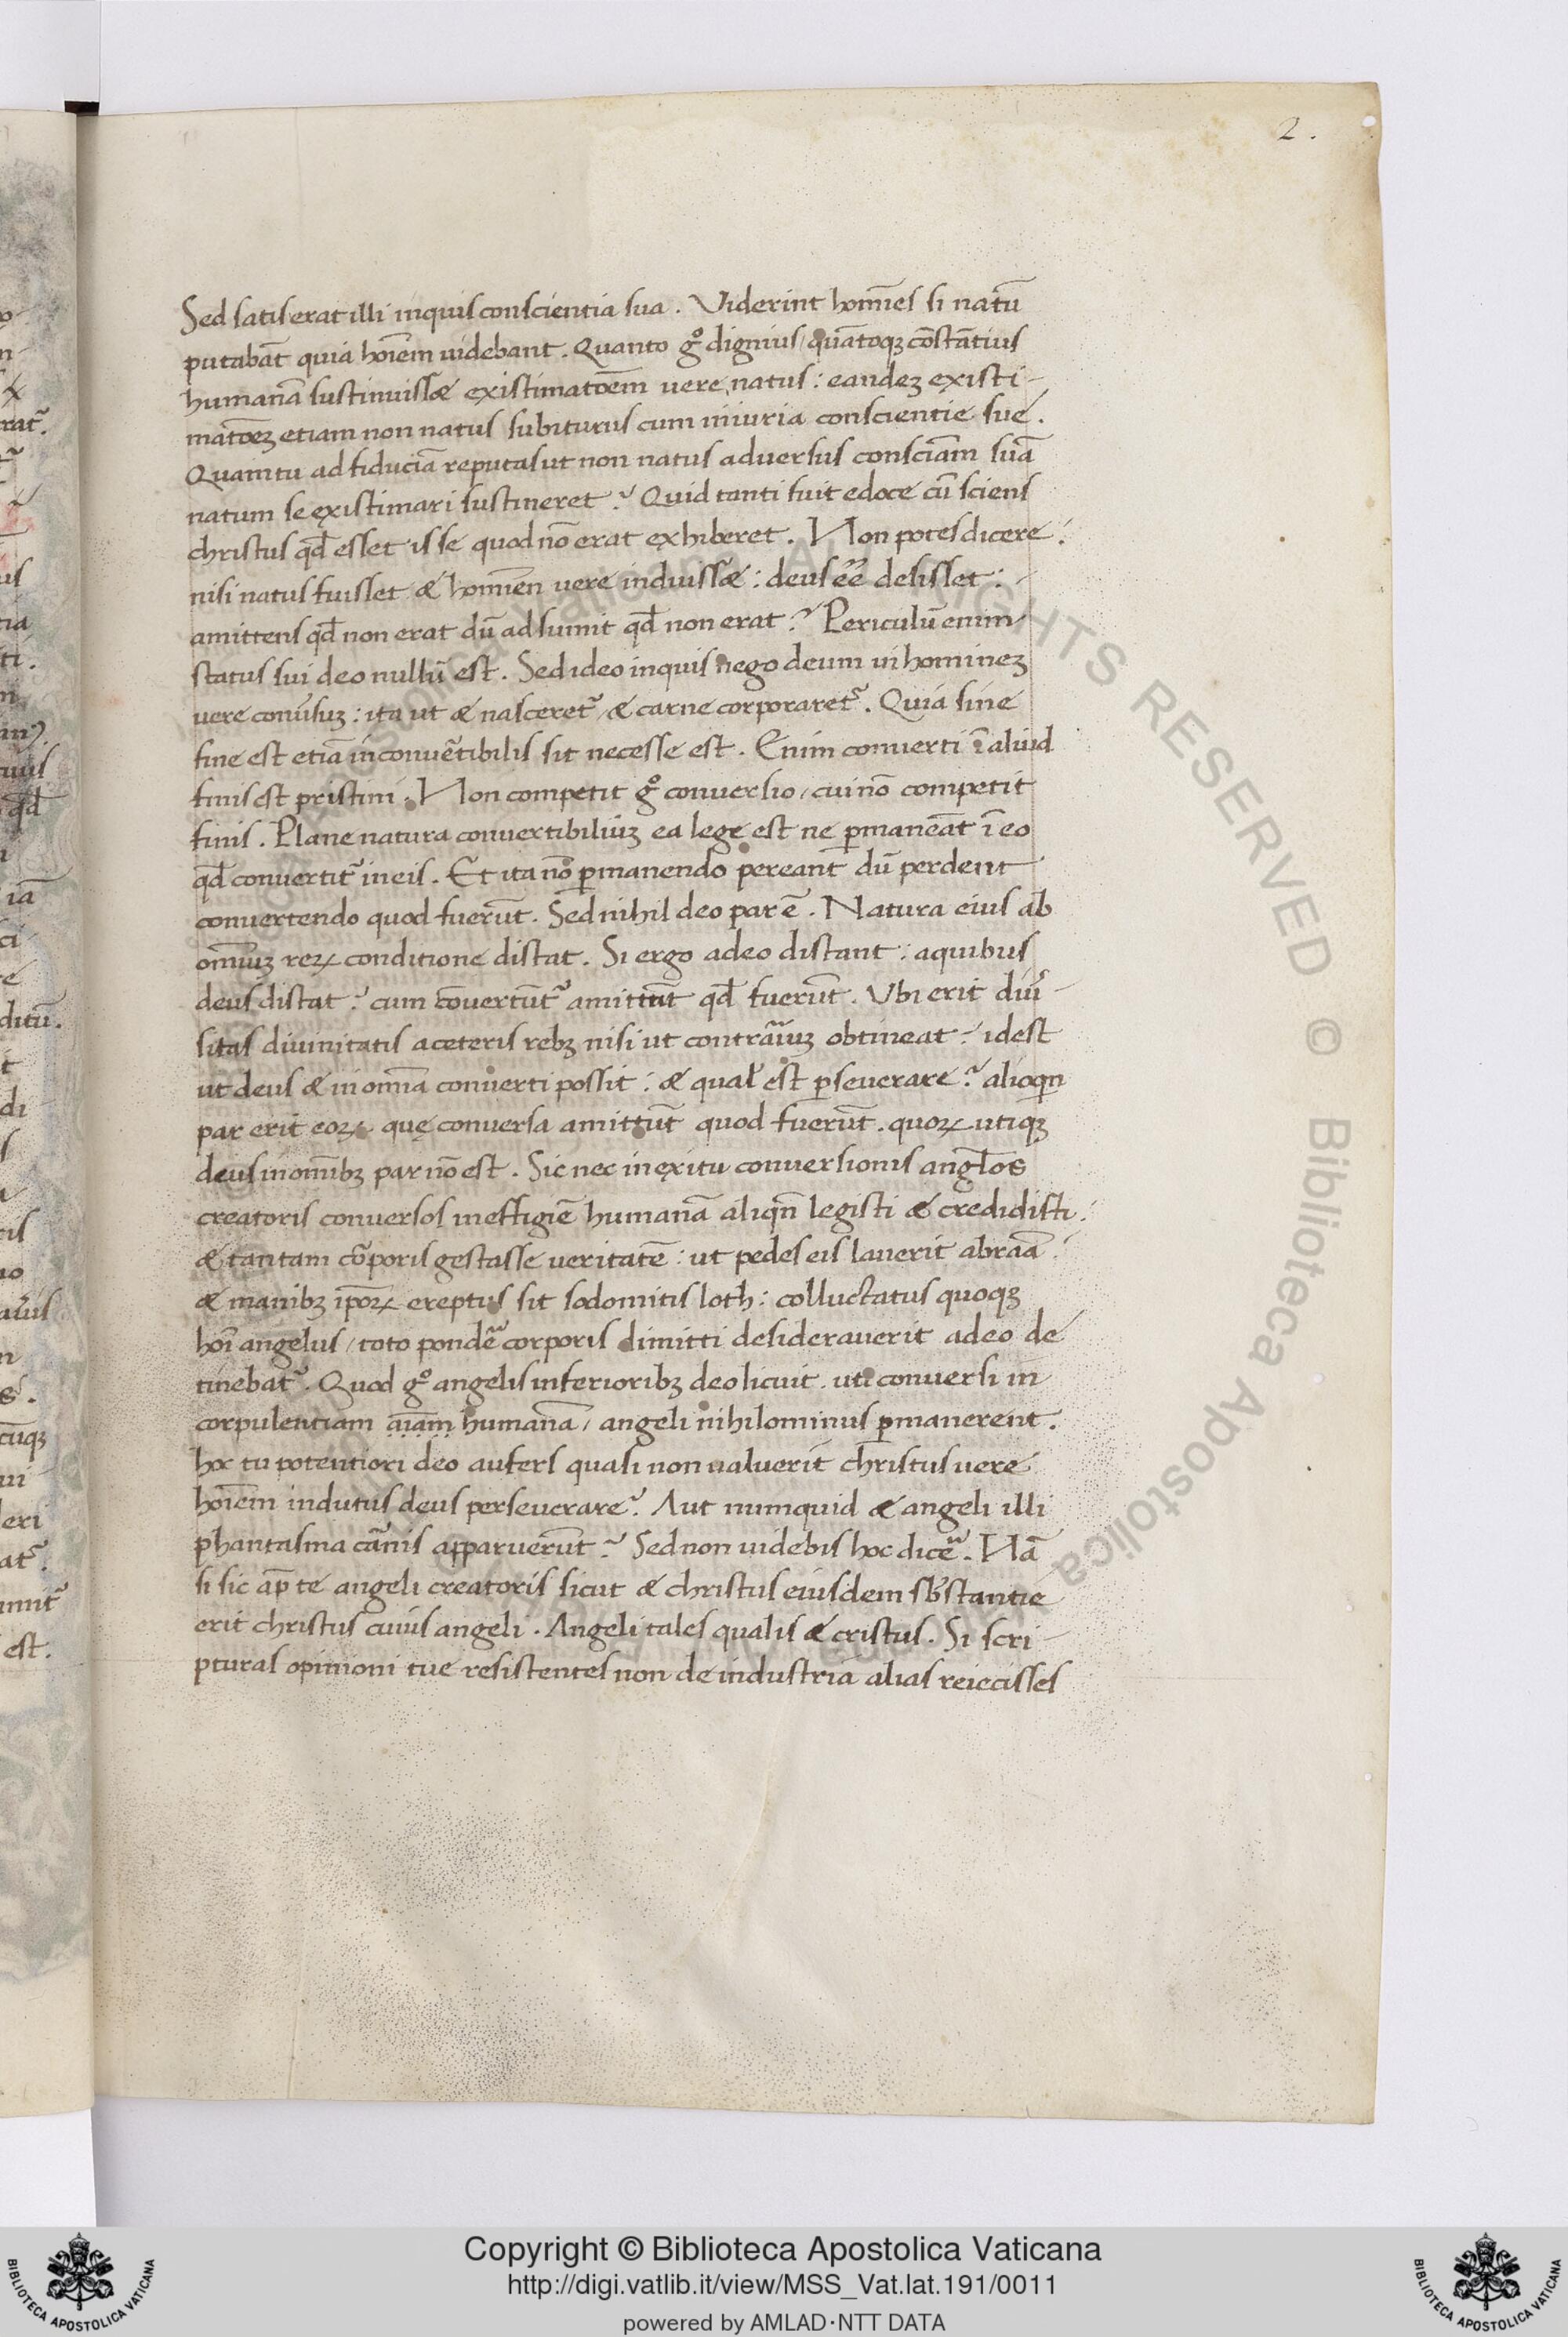 2.
Sed satis erat illi inquis conscientia sua. Viderint homēs si natū
putabāt quia hoīem uidebant. Quanto gͦ dignius / quātoqꝫ cōstātius
humanā sustinuissæ existimatōem vere natus: eandeꝫ existi-
matōeꝫ etiam non natus subiturus cum iniuria conscientie sue.
Quam tu ad fiduciā reputas ut non natus adversus consciam suā
natum se existimari sustineret? Quid tanti fuit edoce cū sciens
christus qd̄ esset is se quod nō erat exhiberet. Non potes dicere:
nisi natus fuisset æ homīem vere induissæ: deus eē desisset:
amittens qd̄ non erat dū adsumit qd̄ non erat? Periculū enim
status sui deo nullū est. Sed ideo inquis nego deum in homineꝫ
vere conūsuꝫ: ita ut æ nascereť / æ carne corporareť. Quia sine
fine est etiā inconvētibilis sit necesse est. Enim converti ī aliud
finis est pristini. Non competit gͦ conversio / cui nō competit
finis. Plane natura convertibiliūꝫ ea lege est ne ꝑmaneāt ī eo
qd̄ convertiť in eis. Et ita nō ꝑmanendo pereant dū perdent
convertendo quod fuerūt. Sed nihil deo par ē. Natura eius ab
omīuꝫ reꝝ conditione distat. Si ergo adeo distant: a quibus
deus distat? cum cōvertūť amittūt qd̄ fuerūt. Ubi erit diū-
sitas divinitatis a ceteris rebꝫ nisi ut contrāiuꝫ obtineat? idest
ut deus æ in omīa converti possit: æ qual' est ꝑseverare? alioqn
par erit eoꝝ quę conversa amittūt quod fuerūt. quoꝝ utiqꝫ
deus in omībꝫ par nō est. Sic nec in exitu conversionis angl̄os
creatoris conversos in effigiē humanā aliqn̄ legisti æ credidisti.
æ tantam cōrporis gestasse veritatē: ut pedes eis laverit abraā:
æ manibꝫ ipōꝝ ereptus sit sodomitis loth: colluctatus quoqꝫ
hoī angelus / toto pondē corporis dimitti desideraverit adeo de
tinebať. Quod gͦ angelis inferioribꝫ deo licuit. uti conversi in
corpulentiam aīam humanā / angeli nihilominus ꝑmanerent.
hoc tu potentiori deo aufers quasi non ualuerit christus vere
hoīem indutus deus perseverare? Aut numquid æ angeli illi
phantasma cāris apparuerūt? Sed non uidebis hoc dicē. Nā
si sic ap̄ te angeli creatoris sicut æ christus eiusdem sb̄stantie
erit christus cuius angeli. Angeli tales qualis æ cristus. Si scri-
pturas opinioni tue resistentes non de industria alias reiecisses
Copyright © Biblioteca Apostolica Vaticana
http://digi.vatlib.it/view/MSS_Vat.lat.191/0011
powered by AMLAD·NTT DATA